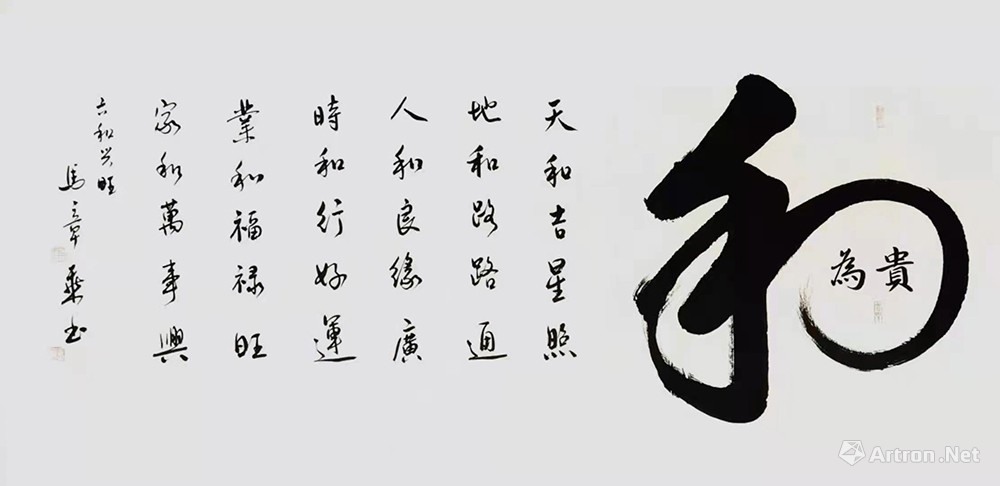 和
為貴
天和吉星照
地和路路通
人和良緣廣
時和行好運
業和福禄旺
家和萬事興
六和兴旺
馬立華書
Artron.Net